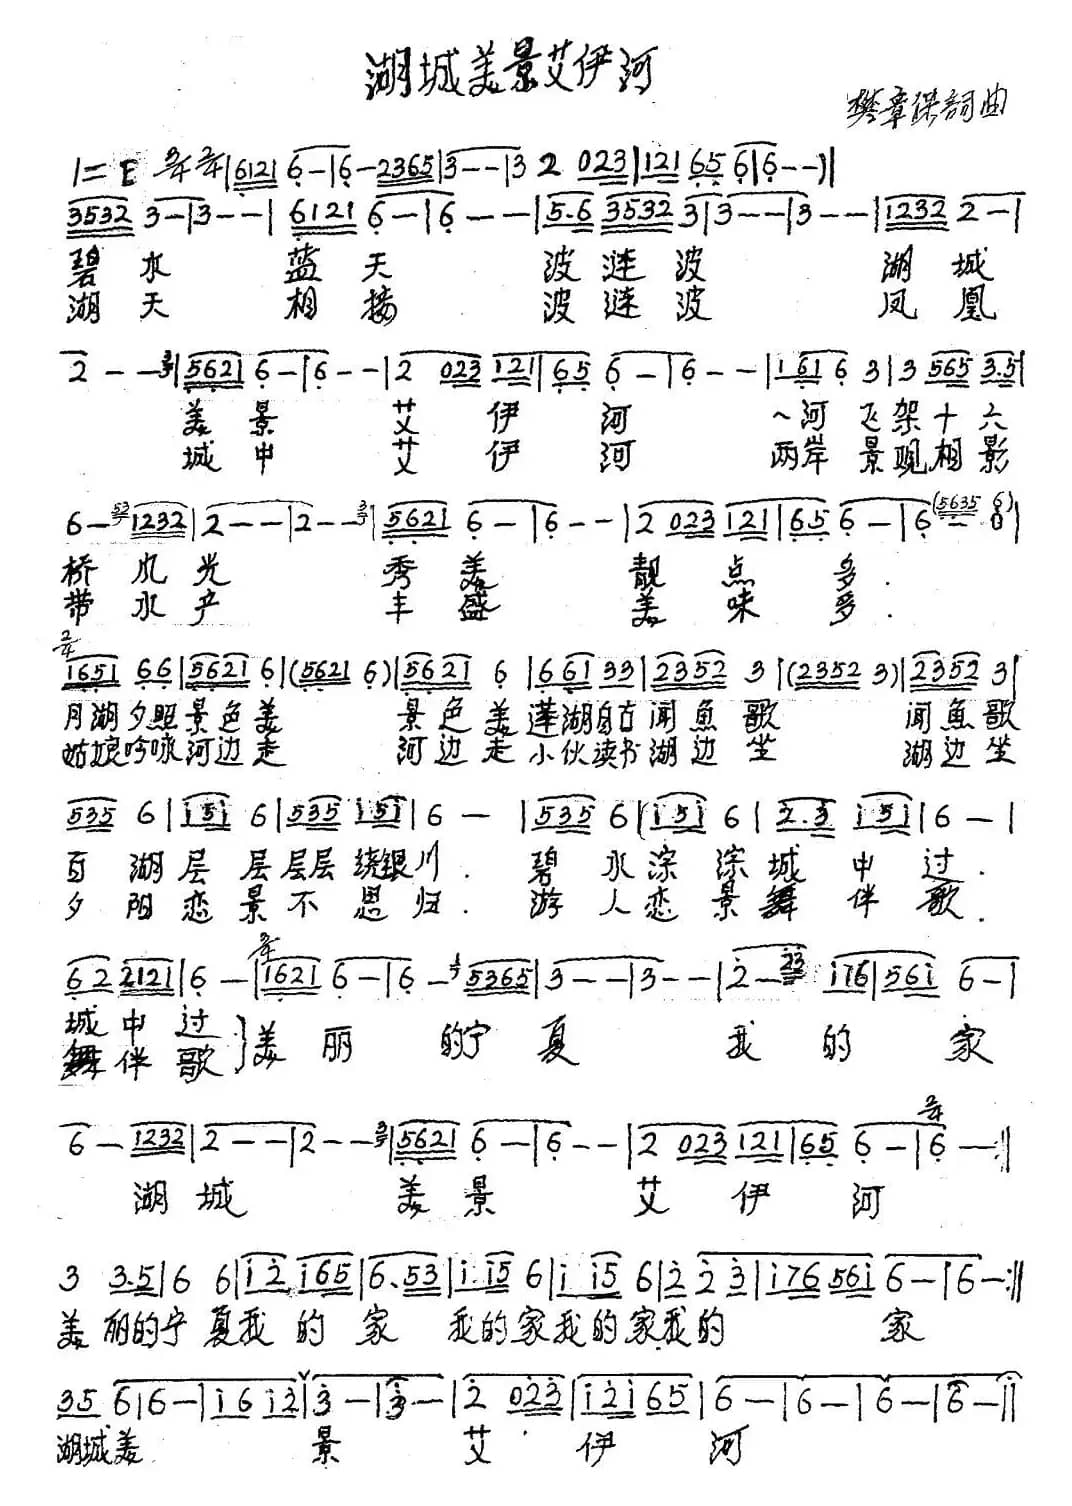 湖城美景艾伊河
樊章保詞曲
1=E 3/4 2/4 |6121 6-|6-2365|3--|3 2 023|121 65 6|6--)|
3532 3-|3--|6121 6-|6---|5.6 3532 3|3--|3--|1232 2-|
碧水 蓝天 波涟波 湖城
湖天 相接 波涟波 凤凰
2---|5621 6-|6--|2 023 121|65 6-|6--|161 6 3|3 565 3.5|
美景 艾伊河 一河飞架十六
城中 艾伊河 两岸景观相影
6- 1232|2--|2--|5621 6-|6--|2 023 121|65 6-|6 (5635 6)|
桥风光 秀美 靓点多.
带水产 丰盛 美味多.
2/4
1651 66|5621 6|(5621 6)|5621 6|661 33|2352 3|(2352 3)|2352 3|
月湖夕照景色美 景色美莲湖自古闻鱼歌 闻鱼歌
姑娘吟咏河边走 河边走小伙读书湖边坐 湖边坐
535 6|i5i 6|535 i5i|6 -|535 6|i5i 6|2.3 i5i|6-|
百湖层层层层绕银川. 碧水淙淙城中过.
夕阳恋景不思归. 游人恋景舞伴歌.
62 2121|6-|1621 6-|6- 5365|3--|3--|2-23 i76|56i 6-|
城中过}美丽的宁夏 我的家
舞伴歌
6- 1232|2--|2--|5621 6-|6--|2 023 121|65 6-|6--:||
湖城 美景 艾伊河
3 3.5|6 6|i2 i65|6.53|i.i5 6|i i5 6|2 2 3|i76 56i|6-|6-:||
美丽的宁夏我的家 我的家我的家我的 家
35 6|6-|i6 i2|3-|3-|2 023|i2i 65|6-|6-|6-|6-||
湖城美 景 艾伊河